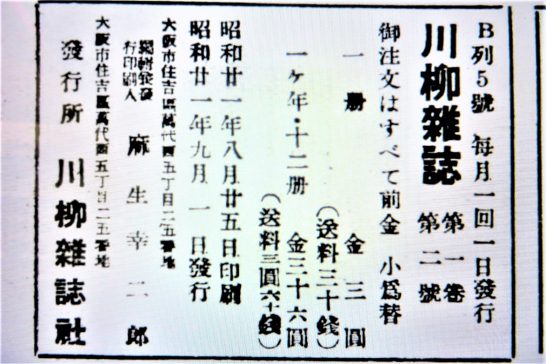 B列5號 每月一回一日發行
川柳雜誌 第一卷 第二號
御注文はすべて前金 小爲替
一册 金三圓
(送料三十錢)
一ヶ年・十二册 金三十六圓
(送料三圓六十錢)
昭和廿一年八月廿五日印刷
昭和廿一年九月一日發行
大阪市住吉區萬代西五丁目二五番地
編輯兼發行印刷人 麻生幸二郎
大阪市住吉區萬代西五丁目二五番地
發行所 川柳雜誌社